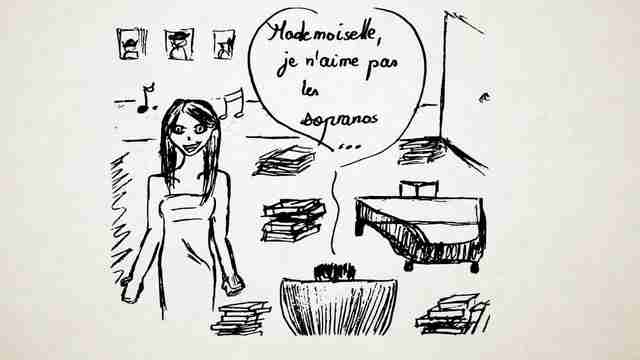 Mademoiselle,
je n'aime pas
les
sopranos
...